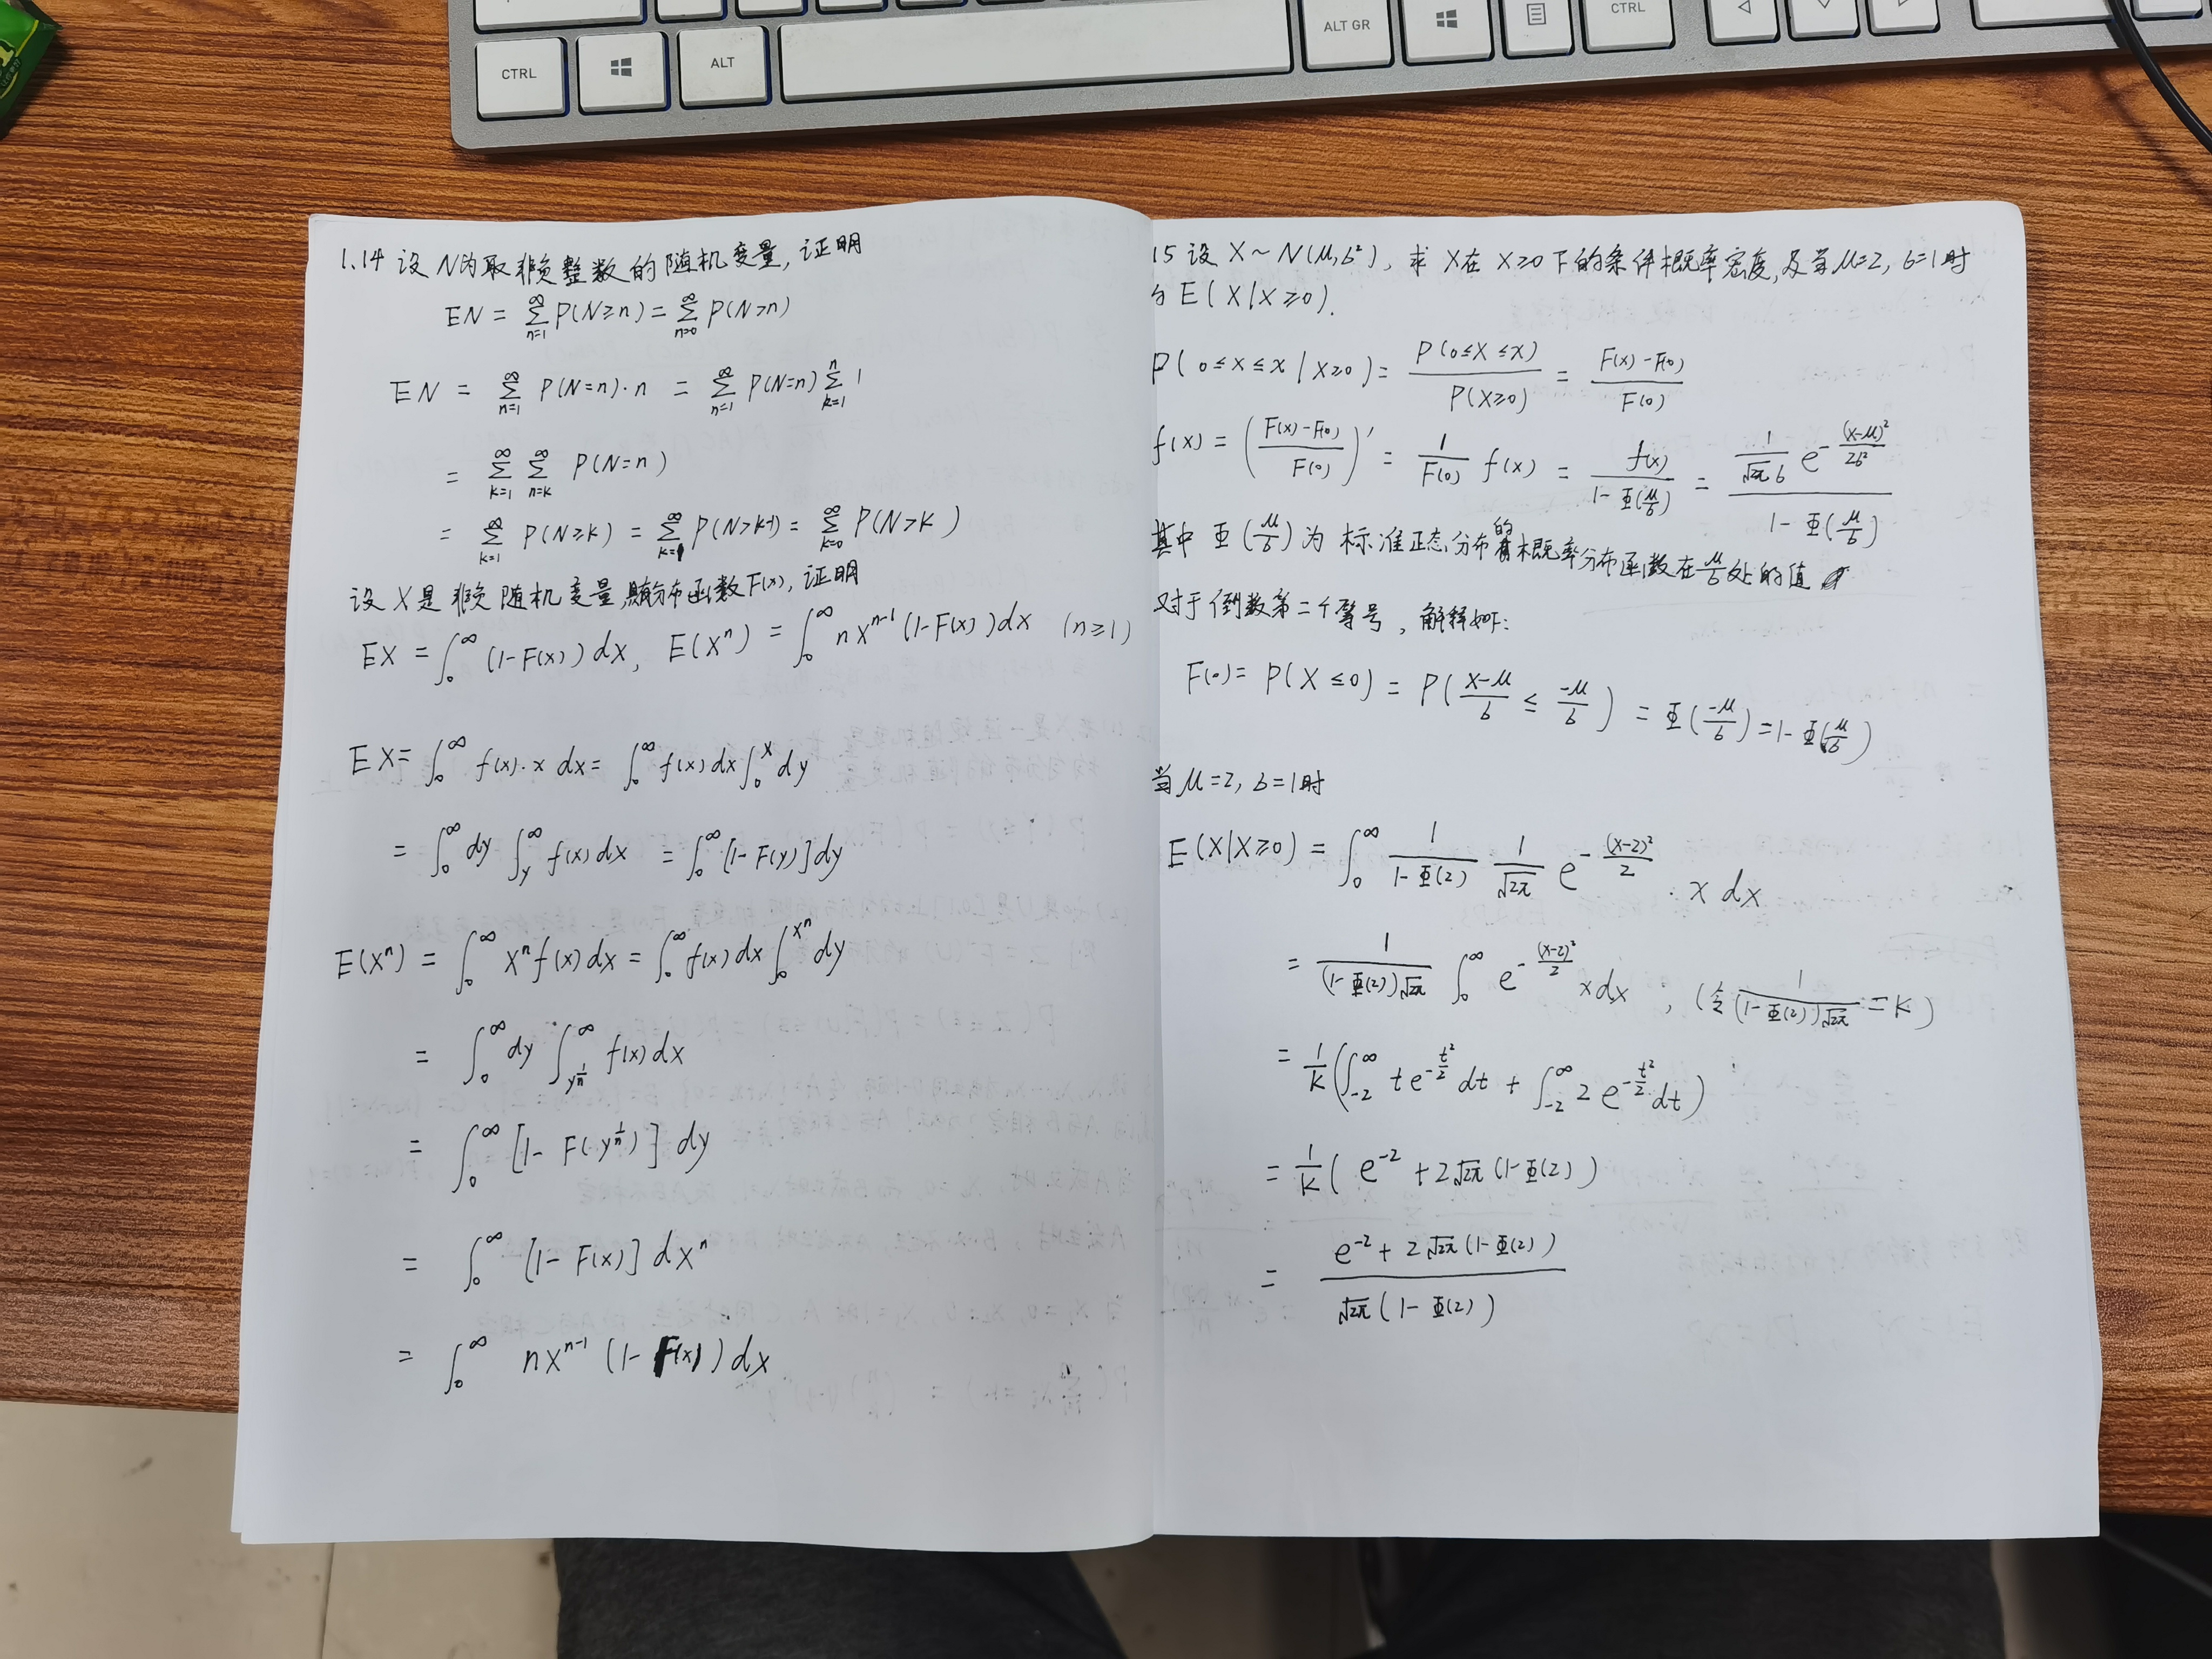 CTRL
ALT
ALT GR
CTRL
1.14 设 N为取非负整数的随机变量, 证明
EN = ∑_{n=1}^{∞} P(N≥n) = ∑_{n=0}^{∞} P(N>n)
EN = ∑_{n=1}^{∞} P(N=n)·n = ∑_{n=1}^{∞} P(N=n) ∑_{k=1}^{n} 1
= ∑_{k=1}^{∞} ∑_{n=k}^{∞} P(N=n)
= ∑_{k=1}^{∞} P(N≥k) = ∑_{k=1}^{∞} P(N>k-1) = ∑_{k=0}^{∞} P(N>k)
设 X是 非负 随机变量, 分布函数F(x), 证明
EX = ∫_0^∞ (1-F(x)) dx, E(X^n) = ∫_0^∞ nx^{n-1} (1-F(x)) dx (n≥1)
EX = ∫_0^∞ f(x)·x dx = ∫_0^∞ f(x) dx ∫_0^x dy
= ∫_0^∞ dy ∫_y^∞ f(x) dx = ∫_0^∞ [1-F(y)] dy
E(X^n) = ∫_0^∞ x^n f(x) dx = ∫_0^∞ f(x) dx ∫_0^{x^n} dy
= ∫_0^∞ dy ∫_{y^{1/n}}^∞ f(x) dx
= ∫_0^∞ [1- F(y^{1/n})] dy
= ∫_0^∞ [1- F(x)] dx^n
= ∫_0^∞ nx^{n-1} (1- F(x)) dx
15 设 X ~ N(μ,б²), 求 X在 X≥0 下的条件概率密度, 及当 μ=2, б=1时
E(X|X≥0).
P(0≤X≤x | X≥0) = P(0≤X≤x) / P(X≥0) = (F(x)-F(0)) / F(0)
f(x) = ((F(x)-F(0)) / F(0))' = 1/F(0) f(x) = f(x) / (1-Φ(μ/б)) = (1/(√2π б) e^{-(x-μ)²/2б²}) / (1-Φ(μ/б))
其中 Φ(μ/б) 为 标准正态分布的概率分布函数在 μ/б 处的值
对于倒数第二个等号, 解释如下:
F(0) = P(X≤0) = P((X-μ)/б ≤ -μ/б) = Φ(-μ/б) = 1-Φ(μ/б)
当 μ=2, б=1时
E(X|X≥0) = ∫_0^∞ 1/(1-Φ(2)) 1/√2π e^{-(x-2)²/2} · x dx
= 1/((1-Φ(2))√2π) ∫_0^∞ e^{-(x-2)²/2} x dx , (令 1/((1-Φ(2))√2π) = K)
= 1/K (∫_{-2}^∞ t e^{-t²/2} dt + ∫_{-2}^∞ 2 e^{-t²/2} dt)
= 1/K (e^{-2} + 2√2π (1-Φ(2))
= (e^{-2} + 2√2π (1-Φ(2))) / (√2π (1-Φ(2)))